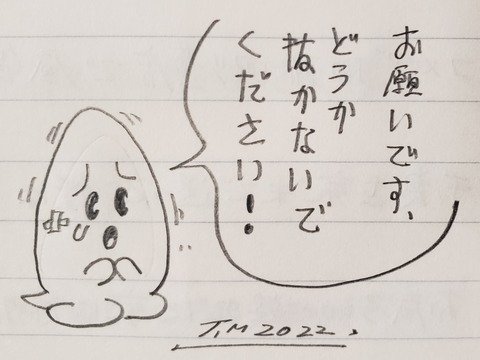 お願いです、
どうか
抜かないで
ください！
TIM 2022.